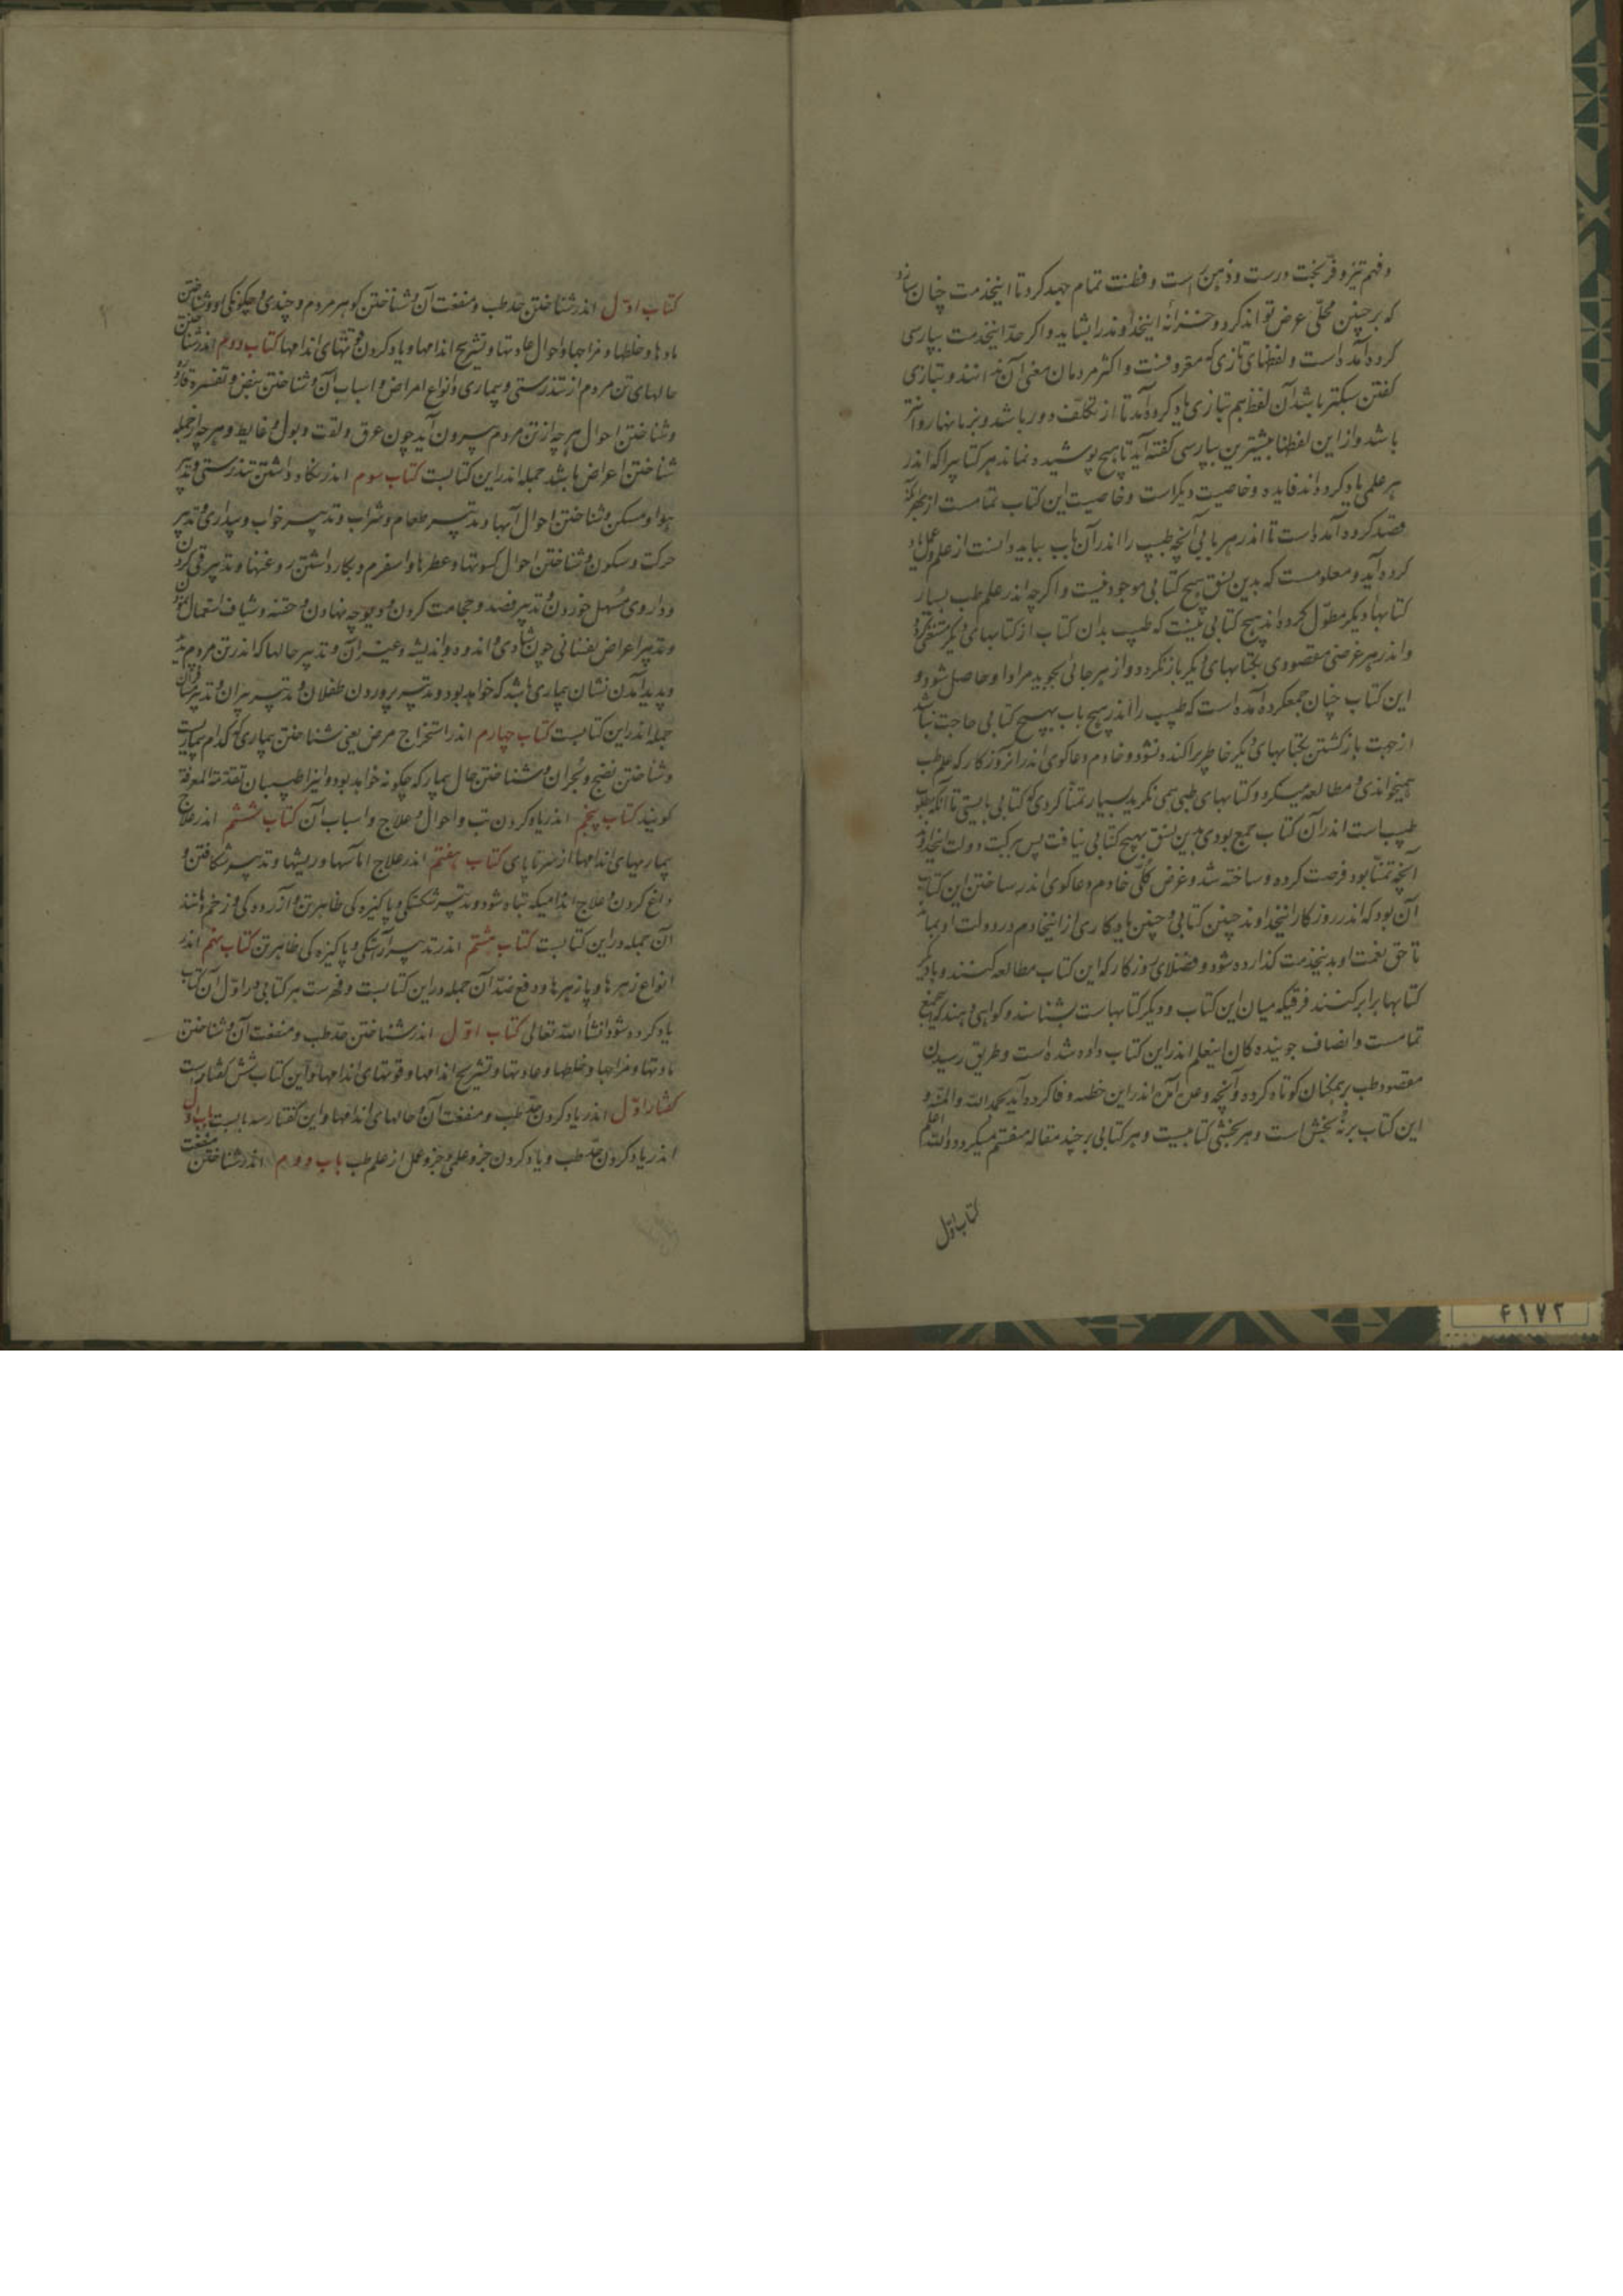 و فهم تیز و فرّ بخت درست و ذهن راست و فطنت تمام جهد کرد تا اینخدمت چنان سازد
که بر چنین محلّی عرض تواند کرد و خزانهٔ اینخداوند را بشاید و اگر چه اینخدمت بپارسی
کرده آمده است و لفظهای تازی که معروفست و اکثر مردمان معنی آن دانند و بتازی
گفتن سبکتر باشد آن لفظ هم بتازی یاد کرده آمد تا از تکلّف دور باشد و بر زبانها روانتر
باشد و از این لفظها بیشترین بپارسی گفته آید تا هیچ پوشیده نماند هر کتابیرا که اندر
هر علمی یاد کرده‌اند فایده و خاصیت دیگر است و خاصیت این کتاب تمامست از بهر آنکه
قصد کرده آمده است تا اندر هر بابی آنچه طبیب را اندر آن باب بباید دانست از علم و عمل یاد
کرده آید و معلومست که بدین نسق هیچ کتابی موجود نیست و اگرچه اندر علم طب بسیار
کتابها دیگر مطوّل کرده‌اند هیچ کتابی نیست که طبیب بدان کتاب از کتابهای دیگر مستغنی گردد
و اندر هر غرضی مقصودی بکتابهای دیگر باز نگردد و از هر جائی بجوید مراد او حاصل شود و
این کتاب چنان جمع کرده آمده است که طبیب را اندر هیچ باب بهیچ کتابی حاجت نباشد
از جهت بازگشتن بکتابهای دیگر خاطر پراکنده نشود و خادم دعاگوی اندر انروزکار که علم طب
همیخواندی و مطالعه میکرد و کتابهای طبی همی نگرید بسیار تمنّا کردی که کتابی بایستی تا آنکه مطلوب
طبیب است اندر آن کتاب جمع بودی بدین نسق هیچ کتابی نیافت پس ببرکت دولت اینخداوند
آنچه تمنّا بود فرصت کرده و ساخته شد و غرض کلّی خادم دعاگوی اندر ساختن این کتاب
آن بود که اندر روزکار اینخداوند چنین کتابی و چنین یادکاری از اینخادم در دولت او بماند
تا حق نعمت او بدینخدمت گذارده شود و فضلای روزکار که این کتاب مطالعه کنند و با دیگر
کتابها برابر کنند فرقیکه میان این کتاب و دیگر کتابهاست بشناسند و گواهی دهند که جمع
تمامست و انصاف جوینده‌کان اینعلم اندر این کتاب داده شده است و طریق رسیدن
مقصود طب بر همکنان کوتاه کرده و آنچه وعده آن اندر این خطبه وفا کرده آید بحمد الله والمنّه و
این کتاب بر نُه بخش است و هر بخشی کتابیست و هر کتابی بر چند مقاله منقسم میگردد والله اعلم
کتاب اوّل
کتاب اوّل اندر شناختن حدّ طب و منفعت آن و شناختن گوهر مردم و چندی و چگونگی او و شناختن
مادها و خلطها و مزاجها و احوال عادتها و تشریح اندامها و یاد کردن قوّتهای اندامها کتاب دوم اندر شناختن
حالهای تن مردم از تندرستی و بیماری و انواع امراض و اسباب آن و شناختن نبض و تفسره قاروره
و شناختن احوال هرچه از تن مردم بیرون آید چون عرق و نفث و بول و غایط و هرچه از جمله
شناختن اعراض باشد جمله اندر این کتابست کتاب سوم اندر نگاه داشتن تندرستی و تدبیر
هوا و مسکن و شناختن احوال آبها و تدبیر طعام و شراب و تدبیر خواب و بیداری و تدبیر
حرکت و سکون و شناختن احوال کسوتها و عطرها و اسفرم و بکار داشتن روغنها و تدبیر قی کردن
و داروی مُسهل خوردن و تدبیر فصد و حجامت کردن و دیوچه نهادن و حقنه و شیاف استعمال نمودن
و تدبیر اعراض نفسانی چون شادی و اندوه و اندیشه و غیر آن و تدبیر حالها که اندر تن مردم
و پدید آمدن نشان بیماری باشد که خواهد بود و تدبیر پروردن طفلان و تدبیر پیران و تدبیر مسافران
جمله اندر این کتابست کتاب چهارم اندر استخراج مرض یعنی شناختن بیماری که کدام بیماریست
و شناختن نضج و بُحران و شناختن حال بیمار که چگونه خواهد بود و اینرا طبیبان تقدمة المعرفة
گویند کتاب پنجم اندر یاد کردن تب و احوال و علاج و اسباب آن کتاب ششم اندر علاج
بیماریهای اندامها از سر تا پای کتاب هفتم اندر علاج اماسها و ریشها و تدبیر شکافتن و
داغ کردن و علاج اندامیکه تباه شود و تدبیر شکستگی و پاکیزه‌کی ظاهر تن و آزرده‌کی و زخم و مانند
آن جمله در این کتابست کتاب هشتم اندر تدبیر آراستگی و پاکیزه‌کی ظاهر تن کتاب نهم اندر
انواع زهرها و پازهرها و دفع ضدّ آن جمله در این کتابست و فهرست هر کتابی در اوّل آن کتاب
یاد کرده شود انشأ الله تعالی کتاب اوّل اندر شناختن حدّ طب و منفعت آن و شناختن
مادتها و مزاجها و خلطها و عادتها و تشریح اندامها و قوتهای اندامها و این کتاب شش گفتار است
گفتار اوّل اندر یاد کردن حدّ طب و منفعت آن و حالهای اندامها و این گفتار سه بابست باب اوّل
اندر یاد کردن حدّ طب و یاد کردن جزو علمی و جزو عملی از علم طب باب دوم اندر شناختن منفعت
۴۱۷۲